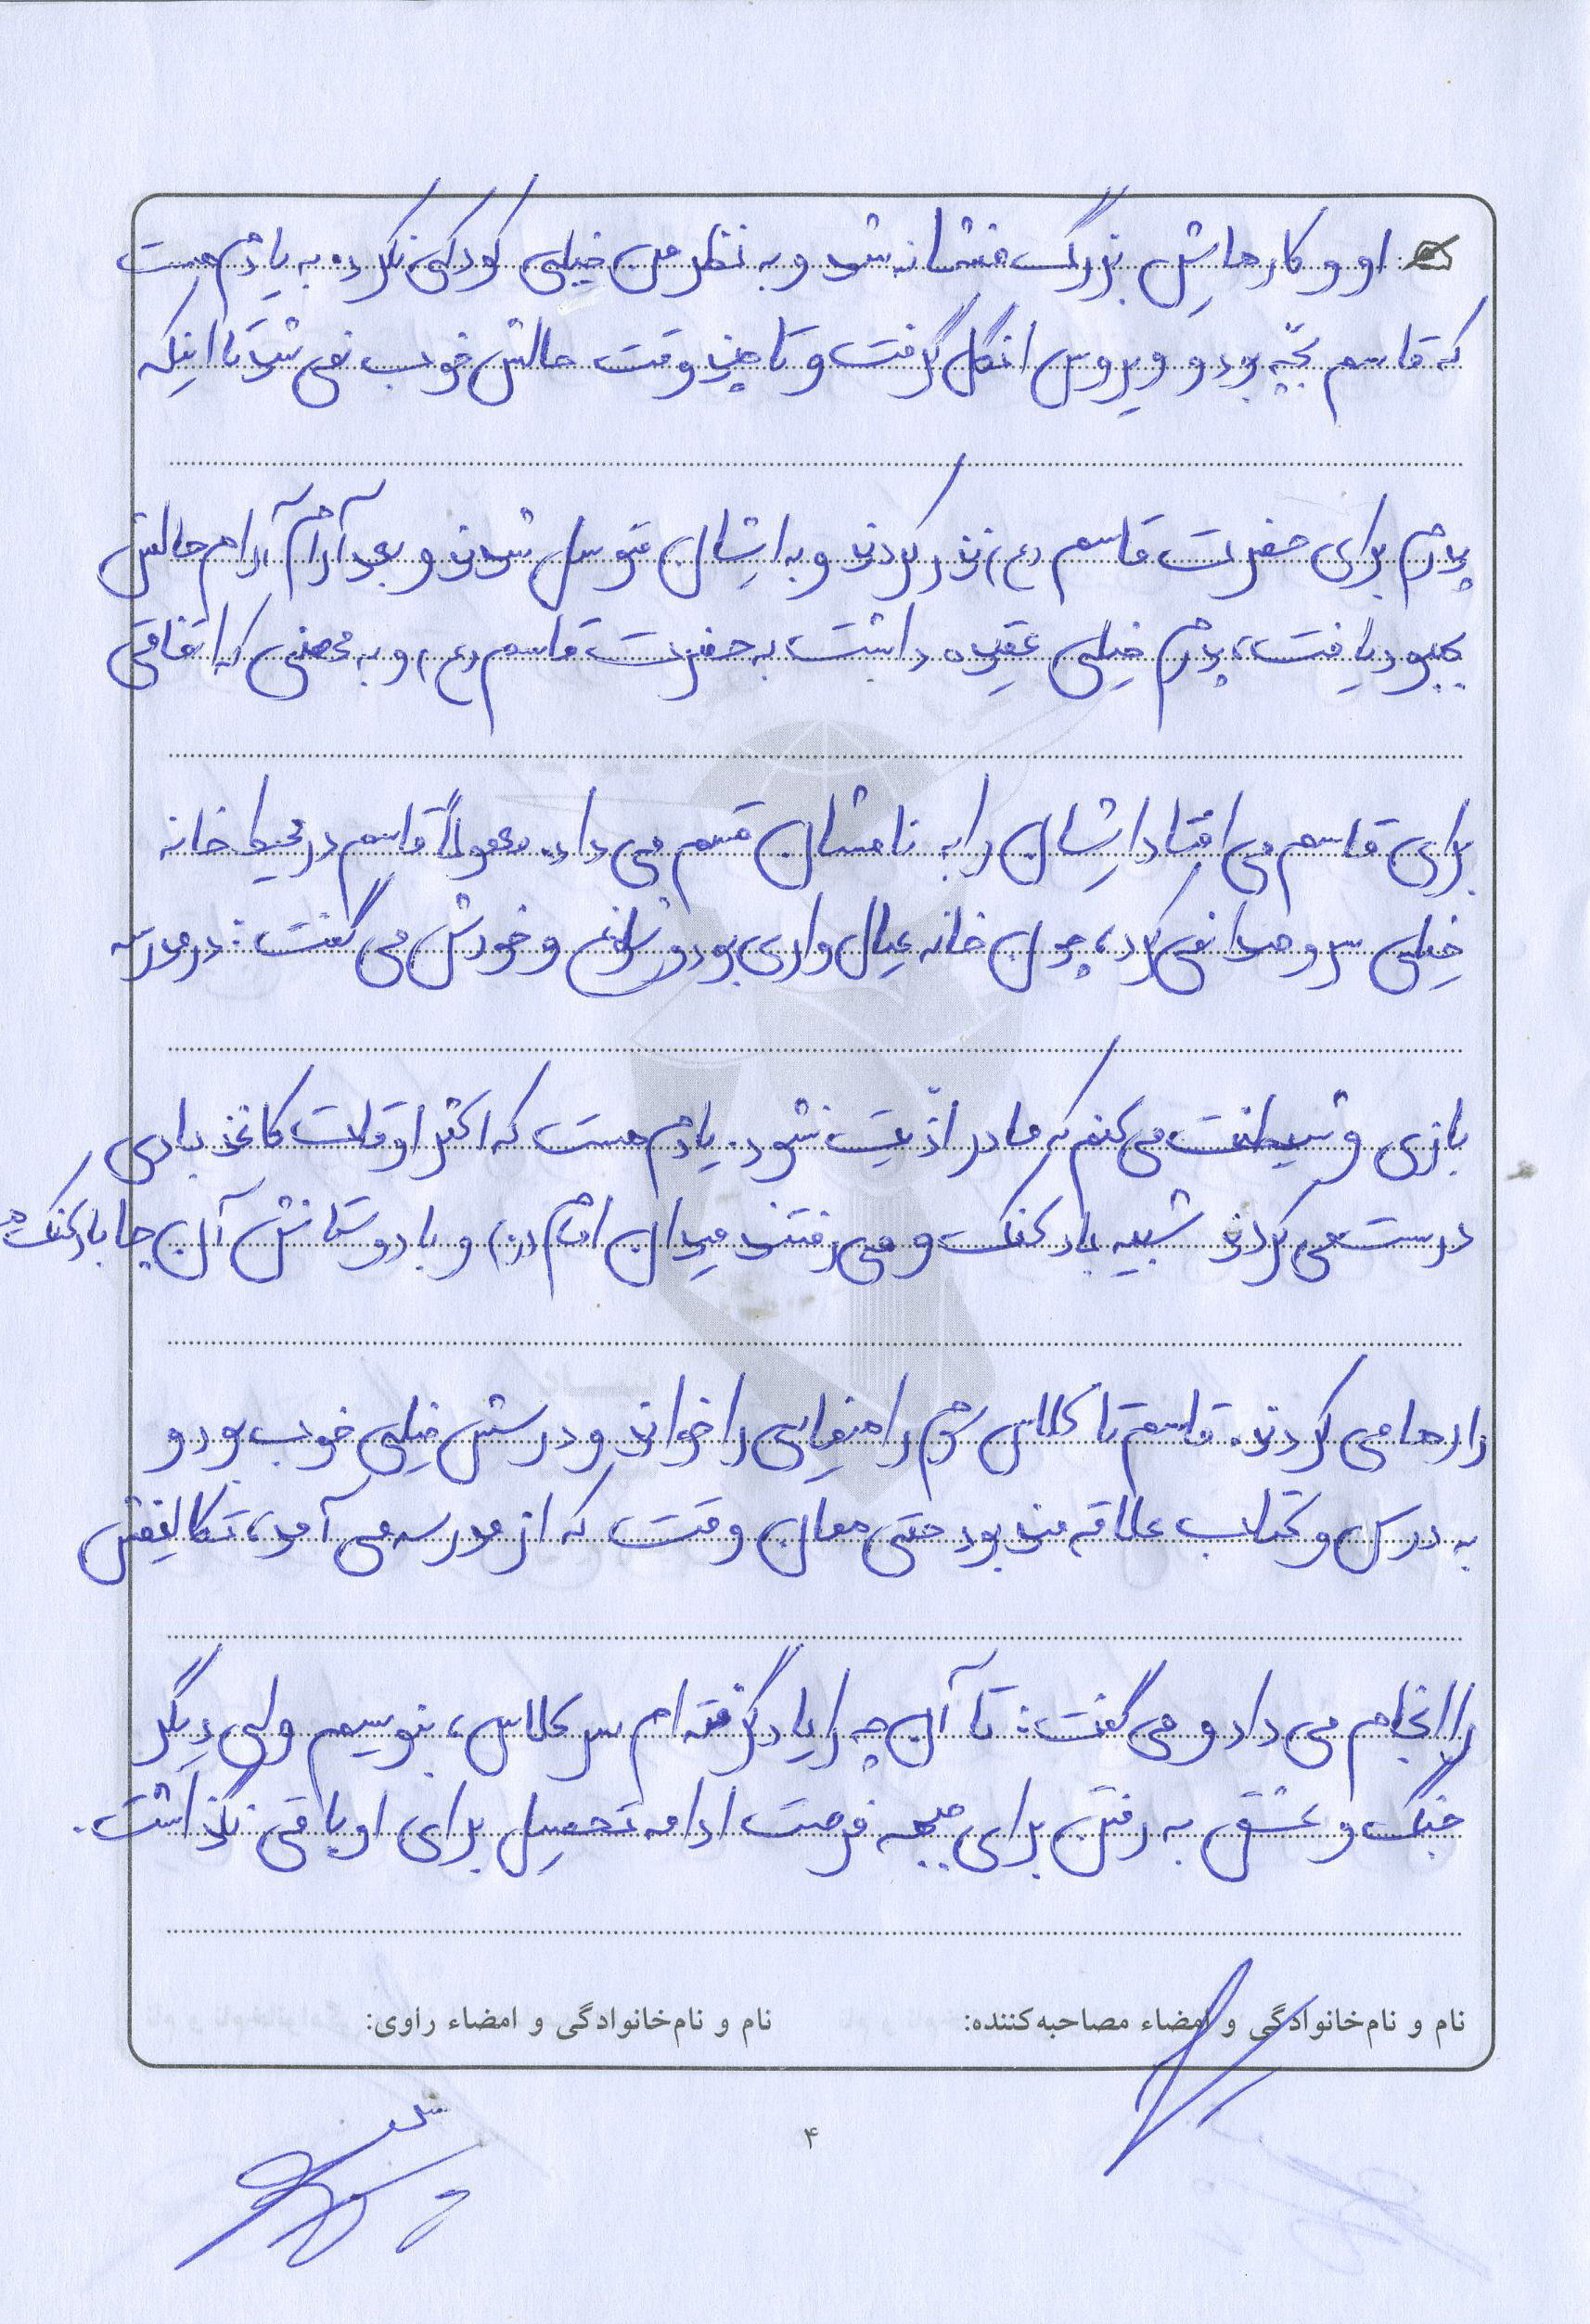 او و کارهایش بزرگ منشانه شد و به نظر من خیلی کودکی نکرد. به یادم هست
که قاسم بچّه بود و ویروس انگل گرفت و تا چند وقت حالش خوب نمی شد تا اینکه
پدرم برای حضرت قاسم (ع) نذر کردند و به ایشان متوسل شدند و بعد آرام آرام حالش
بهبود یافت، پدرم خیلی عقیده داشت به حضرت قاسم (ع) و به محضی که اتفاقی
برای قاسم می افتاد ایشان را به نامشان قسم می داد. معمولاً قاسم در محیط خانه
خیلی سر و صدا نمی کرد، چون خانه عیال واری بود و شلوغ و خودش می گفت: در مدرسه
بازی و شیطنت می کنم که مادر اذّیت نشود. یادم هست که اکثر اوقات کاغذ بادی
درست می کردند شبیه بادکنک و می رفتند میدان امام (ره) و با دوستانش آن جا بادکنک ها
را رها می کردند. قاسم تا کلاس سوم راهنمایی را خواند و درسش خیلی خوب بود و
به درس و کتاب علاقه مند بود حتی همان وقت که از مدرسه می آمد، تکالیفش
را انجام می داد و می گفت: تا آن چه را یاد گرفته ام سر کلاس، بنویسم ولی دیگر
جنگ و عشق به رفتن برای جبهه فرصت ادامه تحصیل برای او باقی نگذاشت.
نام و نام‌خانوادگی و امضاء مصاحبه‌کننده: نام و نام‌خانوادگی و امضاء راوی:
۴